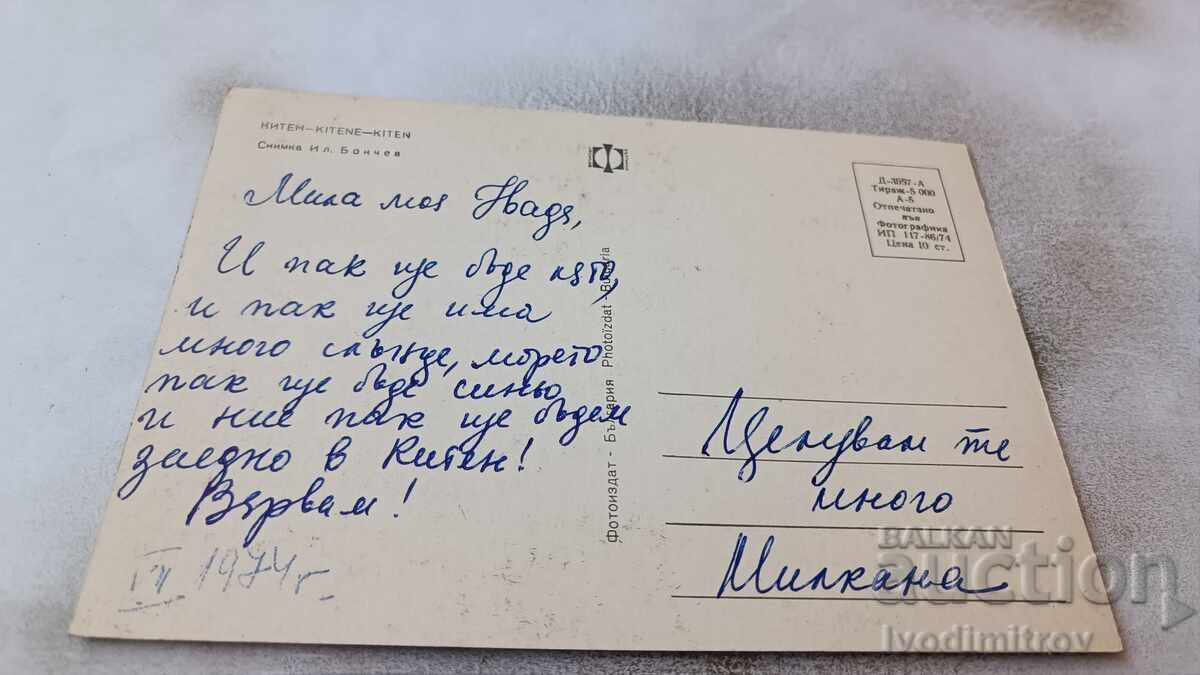 КИТЕН—KITENE—KITEN
Снимка Ил. Бончев
Мила моя
И пак ще бъде лято,
и пак ще има
много слънце, морето
пак ще бъде синьо
и ние пак ще бъдем
заедно в Китен!
Вярвам!
1974 г
Фотоиздат - България Photoïzdat - Bulgaria
Д-3957-А
Тираж-5 000
А-5
Отпечатано
във
Фотографика
ИП 117-86/74
Цена 10 ст.
Целувам те
много
Милкана
BALKAN
auction
Ivodimitrov